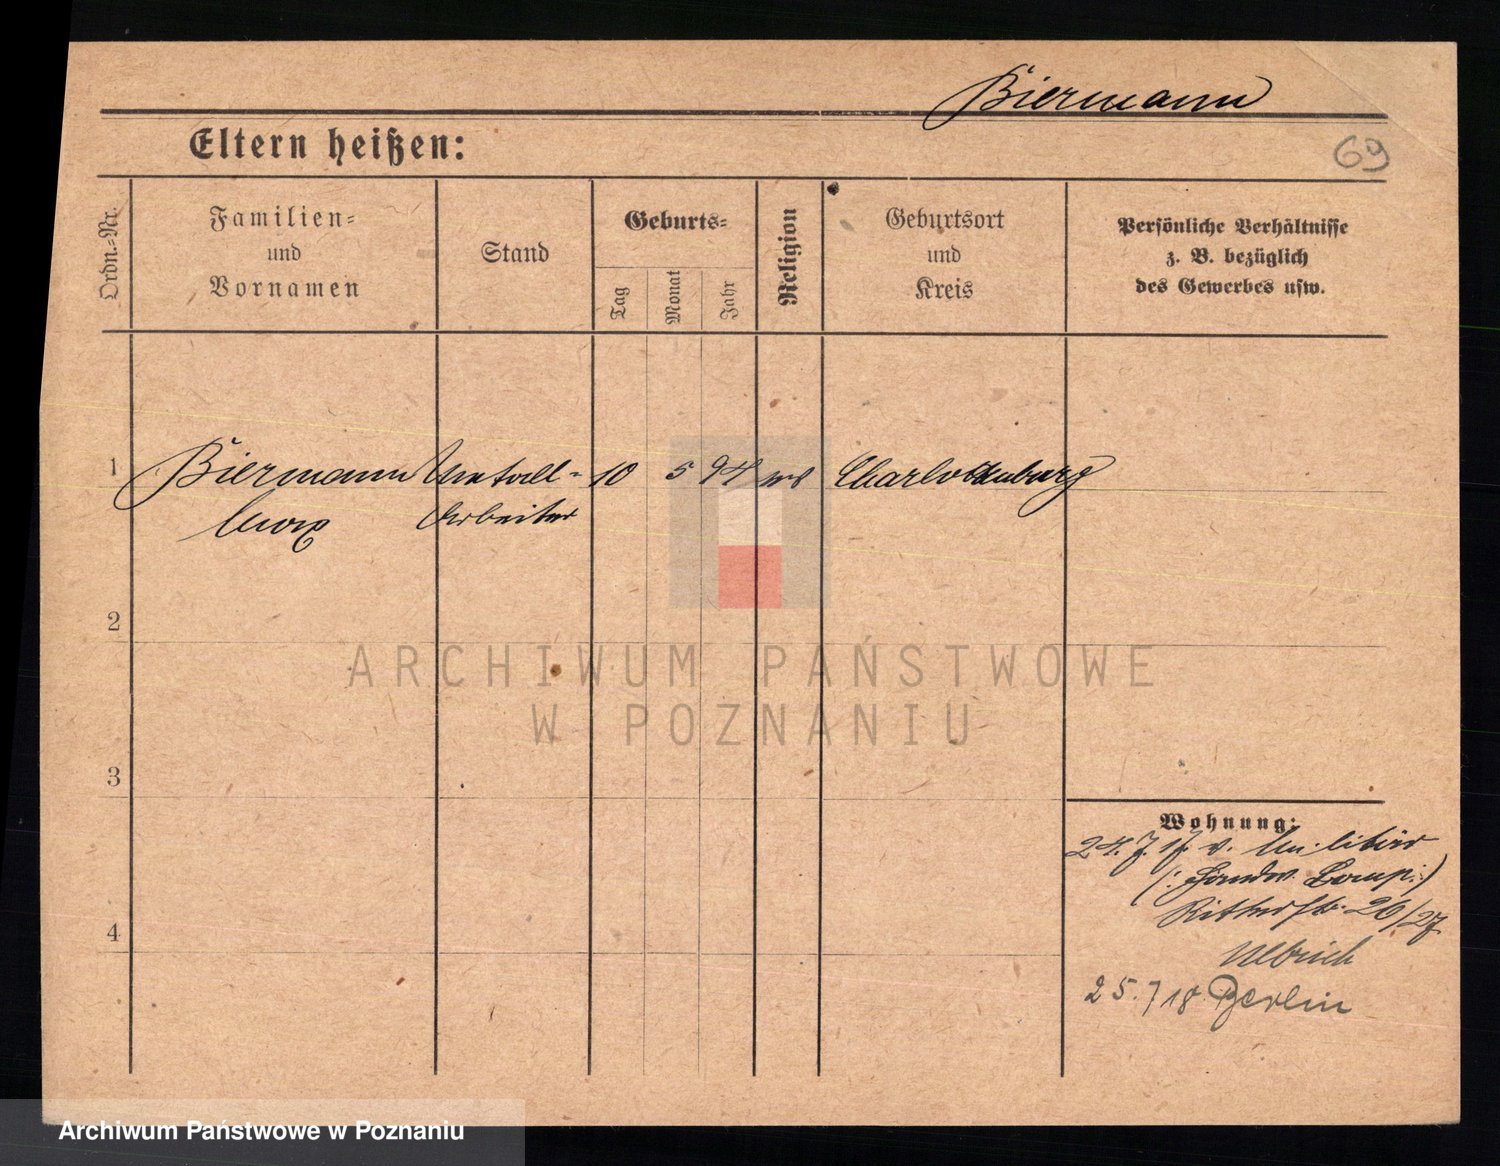 Biermann
69
Eltern heißen:
Ordn.-Nr.
Familien-
und
Vornamen
Stand
Geburts-
Tag
Monat
Jahr
Religion
Geburtsort
und
Kreis
Persönliche Verhältnisse
z. B. bezüglich
des Gewerbes usw.
1 Biermann Metall- 10 5 94 Charlottenburg
Max Arbeiter
2
3
4
Wohnung:
24.7.17 v. Militär
(: Handw. Komp.:)
Ritterstr. 26/27
Ulbrich
25.7 18 Berlin
ARCHIWUM PAŃSTWOWE
W POZNANIU
Archiwum Państwowe w Poznaniu